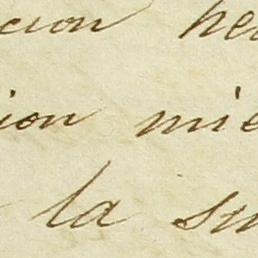 cion he
ion mie
la su